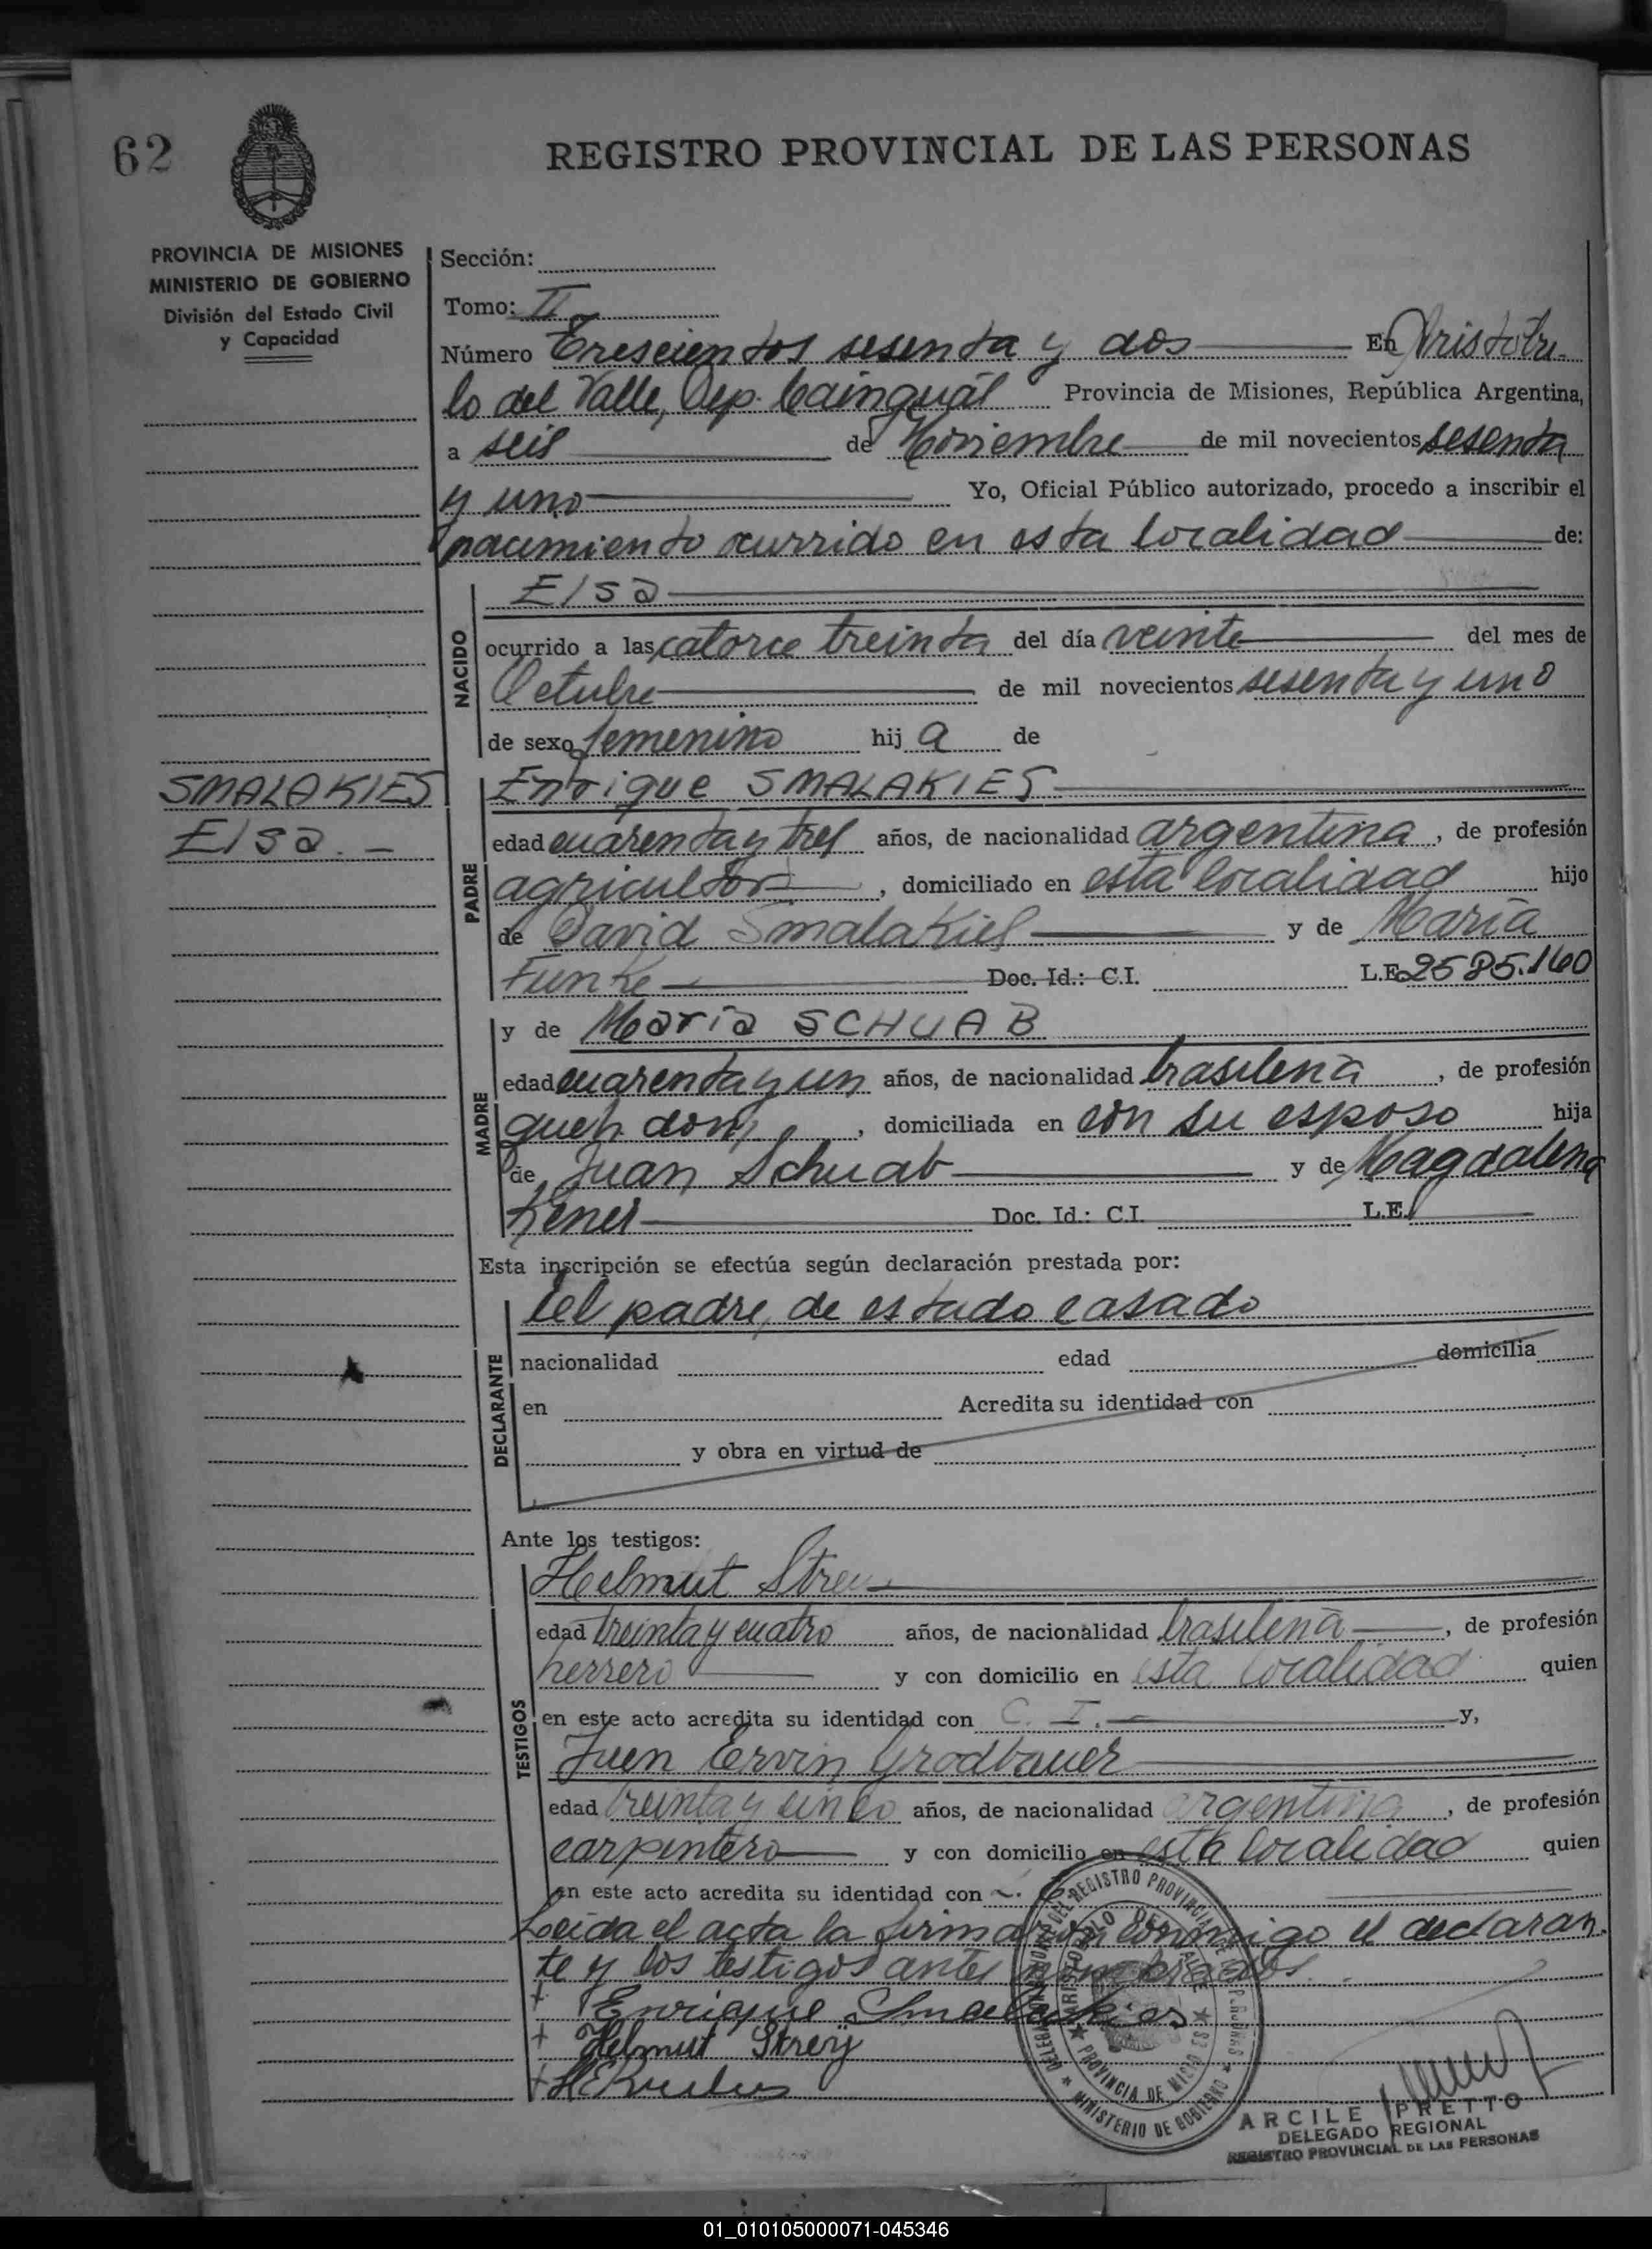 62
REGISTRO PROVINCIAL DE LAS PERSONAS
PROVINCIA DE MISIONES
MINISTERIO DE GOBIERNO
División del Estado Civil
y Capacidad
Sección:
Tomo: II
Número Trescientos sesenta y dos En Aristóbu-
lo del Valle, Dep. Cainguás Provincia de Misiones, República Argentina,
a seis de Noviembre de mil novecientos sesenta
y uno Yo, Oficial Público autorizado, procedo a inscribir el
nacimiento ocurrido en esta localidad de:
NACIDO
Elsa
ocurrido a las catorce treinta del día veinte del mes de
Octubre de mil novecientos sesenta y uno
de sexo femenino hij a de
SMALAKIES
Elsa. -
PADRE
Enrique SMALAKIES
edad cuarenta y tres años, de nacionalidad argentina, de profesión
agricultor, domiciliado en esta localidad hijo
de David Smalakies y de María
Funke Doc. Id.: C.I. L.E. 2585.160
MADRE
y de María SCHUAB
edad cuarenta y un años, de nacionalidad brasileña, de profesión
queh. dom, domiciliada en con su esposo hija
de Juan Schuab y de Magdalena
Doc. Id.: C.I. L.E.
Esta inscripción se efectúa según declaración prestada por:
DECLARANTE
el padre, de estado casado
nacionalidad edad domicilia
en Acredita su identidad con
y obra en virtud de
Ante los testigos:
TESTIGOS
Helmut Strey
edad treinta y cuatro años, de nacionalidad brasileña, de profesión
herrero y con domicilio en esta localidad quien
en este acto acredita su identidad con C. I. y,
Juan Ervin Grodbauer
edad treinta y cinco años, de nacionalidad argentina, de profesión
carpintero y con domicilio en esta localidad quien
en este acto acredita su identidad con
Leída el acta la firman conmigo el declaran-
te y los testigos antes nombrados.
+ Enrique Smalakies
+ Helmut Strey
+
DELEGACION REGIONAL DEL REGISTRO PROVINCIAL DE LAS PERSONAS
ARISTOBULO DEL VALLE
PROVINCIA DE MISIONES
MINISTERIO DE GOBIERNO
ARCILE PRETTO
DELEGADO REGIONAL
REGISTRO PROVINCIAL DE LAS PERSONAS
01_010105000071-045346